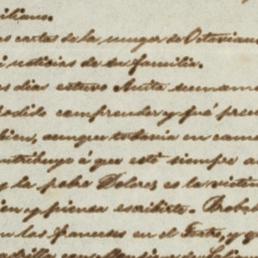 iliano.
as cartas de la muger de Octavian
i noticias de su familia.
os dias estuvo Anita sumam
podido comprender y fué preci
bien, aunque todavia en cam
ontribuye á que esté siempre a
y la pobre Dolores es la victim
ien y piensa escribirte.
on los franceses en el Fuerte, y q